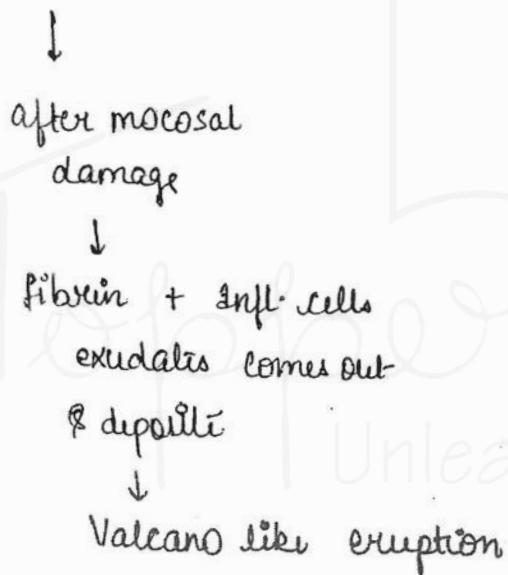 ↓
after mocosal
damage
↓
fibrin + Infl. cells
exudates comes out
& deposite
↓
Valcano like eruption
Topper
Unlea